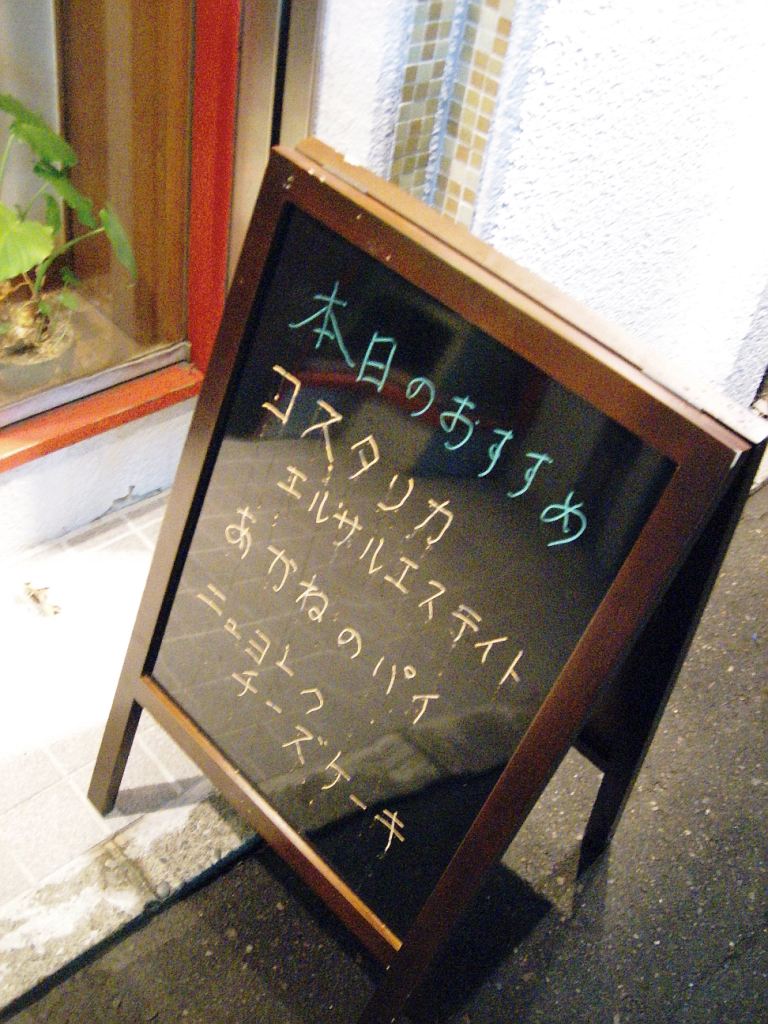 本日のおすすめ
コスタリカ
エルサルエステイト
あかねのパイ
ニューヨーク
チーズケーキ